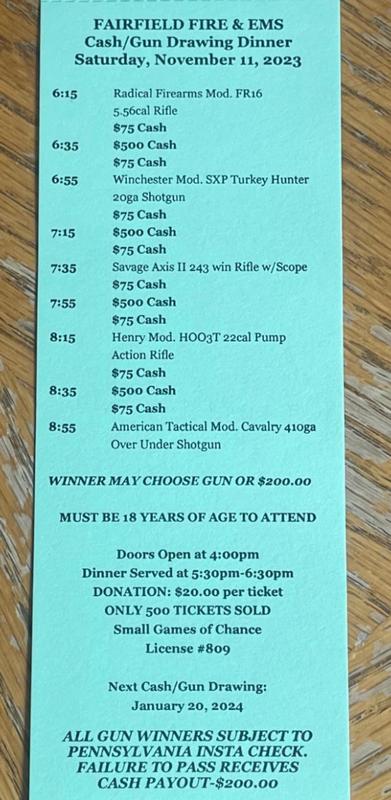 FAIRFIELD FIRE & EMS
Cash/Gun Drawing Dinner
Saturday, November 11, 2023
6:15 Radical Firearms Mod. FR16
5.56cal Rifle
$75 Cash
6:35 $500 Cash
$75 Cash
6:55 Winchester Mod. SXP Turkey Hunter
20ga Shotgun
$75 Cash
7:15 $500 Cash
$75 Cash
7:35 Savage Axis II 243 win Rifle w/Scope
$75 Cash
7:55 $500 Cash
$75 Cash
8:15 Henry Mod. HOO3T 22cal Pump
Action Rifle
$75 Cash
8:35 $500 Cash
$75 Cash
8:55 American Tactical Mod. Cavalry 410ga
Over Under Shotgun
WINNER MAY CHOOSE GUN OR $200.00
MUST BE 18 YEARS OF AGE TO ATTEND
Doors Open at 4:00pm
Dinner Served at 5:30pm-6:30pm
DONATION: $20.00 per ticket
ONLY 500 TICKETS SOLD
Small Games of Chance
License #809
Next Cash/Gun Drawing:
January 20, 2024
ALL GUN WINNERS SUBJECT TO
PENNSYLVANIA INSTA CHECK.
FAILURE TO PASS RECEIVES
CASH PAYOUT-$200.00